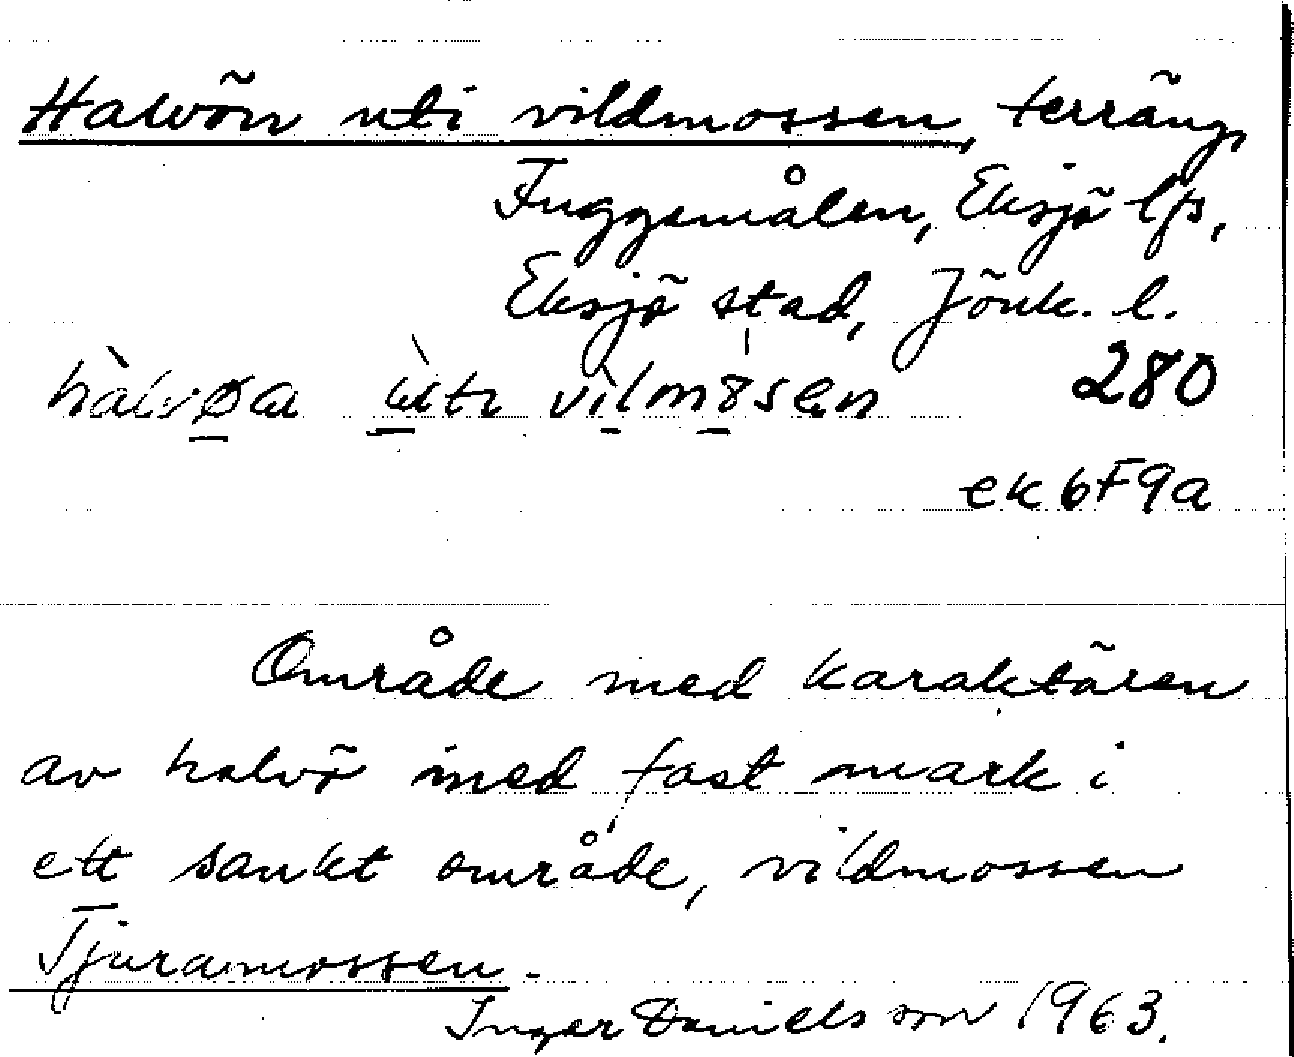 Halvön uti vildmossen, terräng,
Fuggemålen, Eksjö lfs,
Eksjö stad, Jönk. l.
280
ek 6F9a
Område med karaktären
av halvö med fast mark i
ett sankt område, vildmossen
Tjuramossen.
Inger Danielsson 1963.